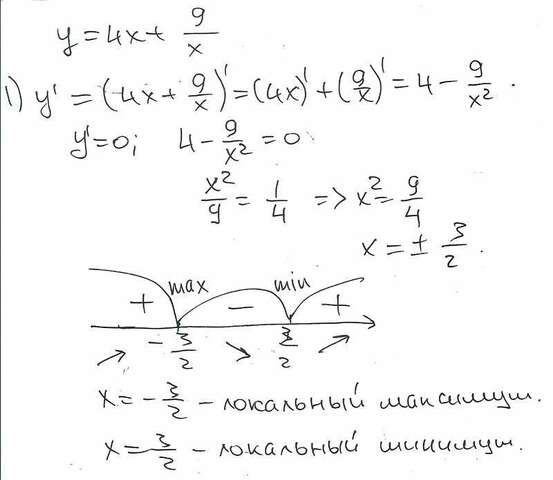 y = 4x + 9/x
1) y' = (4x + 9/x)' = (4x)' + (9/x)' = 4 - 9/x² .
y' = 0; 4 - 9/x² = 0
x²/9 = 1/4 => x² = 9/4
x = ± 3/2 .
max min
+ - +
↗ -3/2 ↘ 3/2 ↗
x = -3/2 - локальный максимум.
x = 3/2 - локальный минимум.